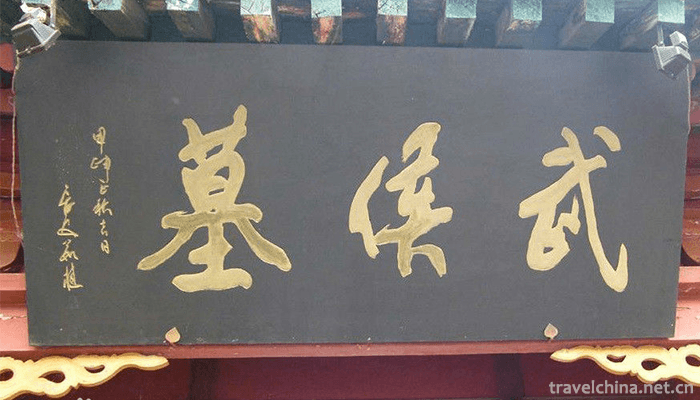 武侯墓
甲申秋吉日
travelchina.net.cn